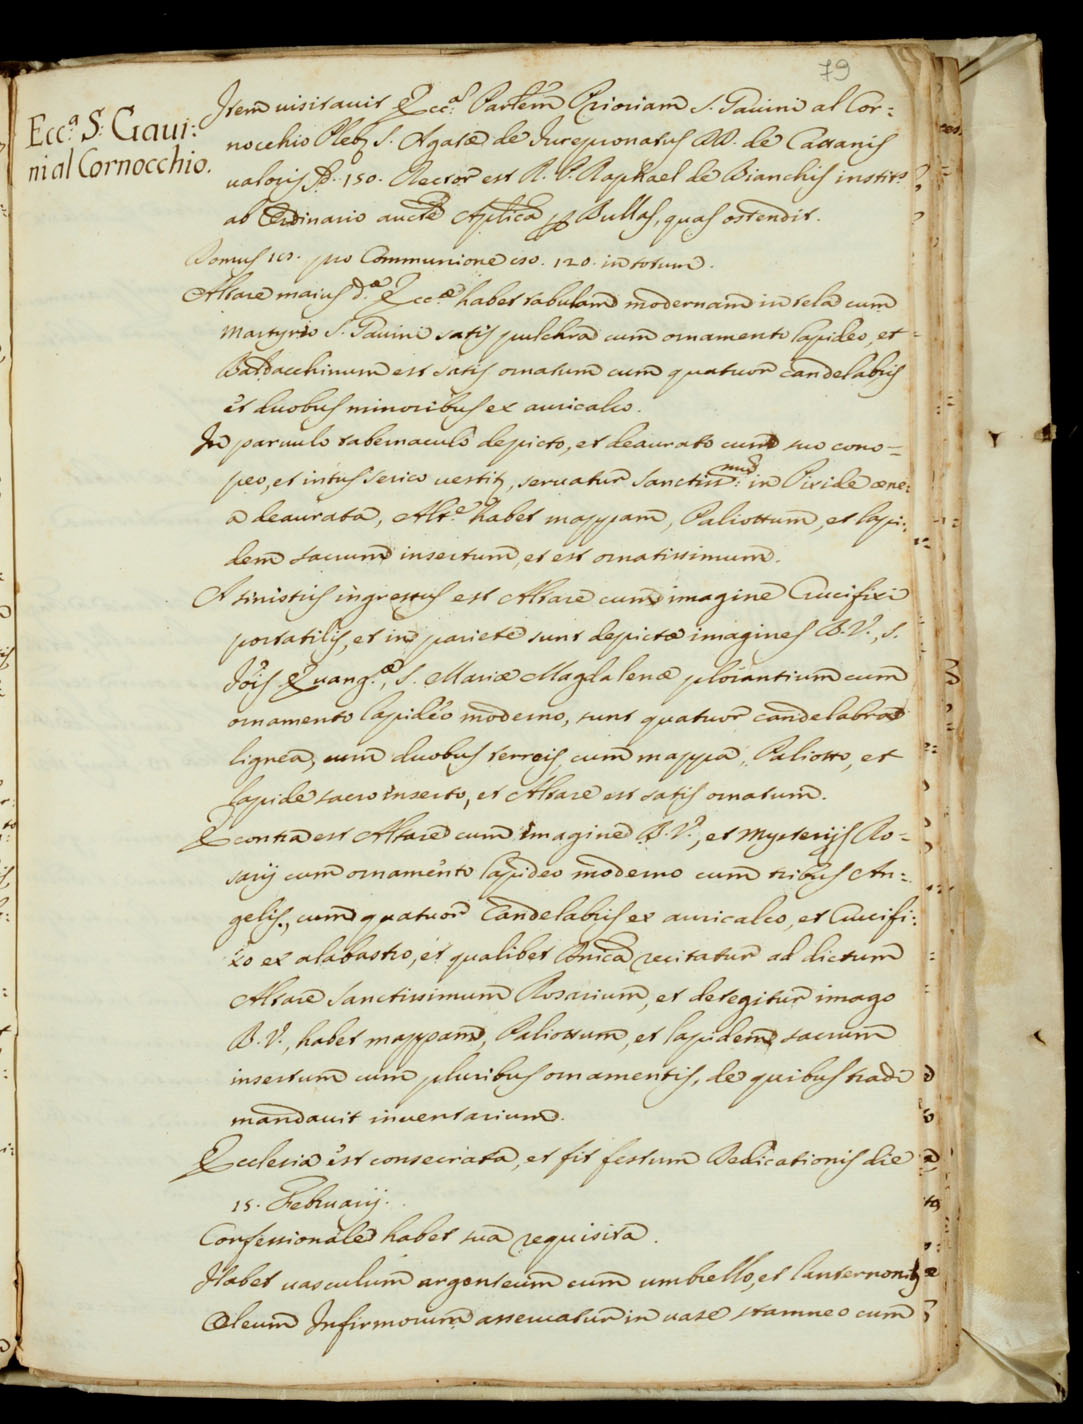 79
Ecc.ª S: Gaui:
ni al Cornocchio.
Item uisitauit Ecc.ª Parlem Prioriam S. Gauini al Cor=
nocchio Pleb. S. Agatæ de Jurepronatus DD. de Cattanis
ualoris 150. Rector est R. P. Raphael de Bianchis instit.s
ab Ordinario aucte Aplica p Bullas, quas ostendit.
Domus 10. pro Communione 120. in totum.
Altare maius d.æ Ecc.æ habet tabulam modernam in tela cum
Martyrio S. Gauini satis pulchra cum ornamento lapideo, et
Baldacchinum est satis ornatum cum quatuor candelabris
et duobus minoribus ex auricalco.
In paruulo tabernaculo depicto, et deaurato cum suo cono=
peo, et intus serico uestit, seruatur Sanctiss.mum in Pixide æne:
a deaurata, Alt.e habet mappam, Paliottum, et lapi:
dem sacrum insertum, et est ornatissimum.
A sinistris ingressus est Altare cum imagine Crucifixi
portatilis, et in pariete sunt depictæ imagines B. V., S.
Jois Euang.æ, S. Mariæ Magdalenæ plorantium cum
ornamento lapideo moderno, sunt quatuor candelabra
lignea, cum duobus ferreis, cum mappa, Paliotto, et
lapide sacro inserto, et Altare est satis ornatum.
E contra est Altare cum imagine B. V., et Mysterijs Ro=
sarij cum ornamento lapideo moderno cum tribus An=
gelis, cum quatuor Candelabris ex auricalco, et Crucifi:
xo ex alabastro, et qualibet Dnica recitatur ad dictum
Altare Sanctissimum Rosarium, et detegitur imago
B. V., habet mappam, Paliottum, et lapidem sacrum
insertum cum pluribus ornamentis, de quibus tradi
mandauit inuentarium.
Ecclesia est consecrata, et fit festum Dedicationis die
15. Februarij.
Confessionale habet sua requisita.
Habet uasculum argenteum cum umbello, et lanternonib
Oleum Infirmorum asseruatur in uase stamneo cum